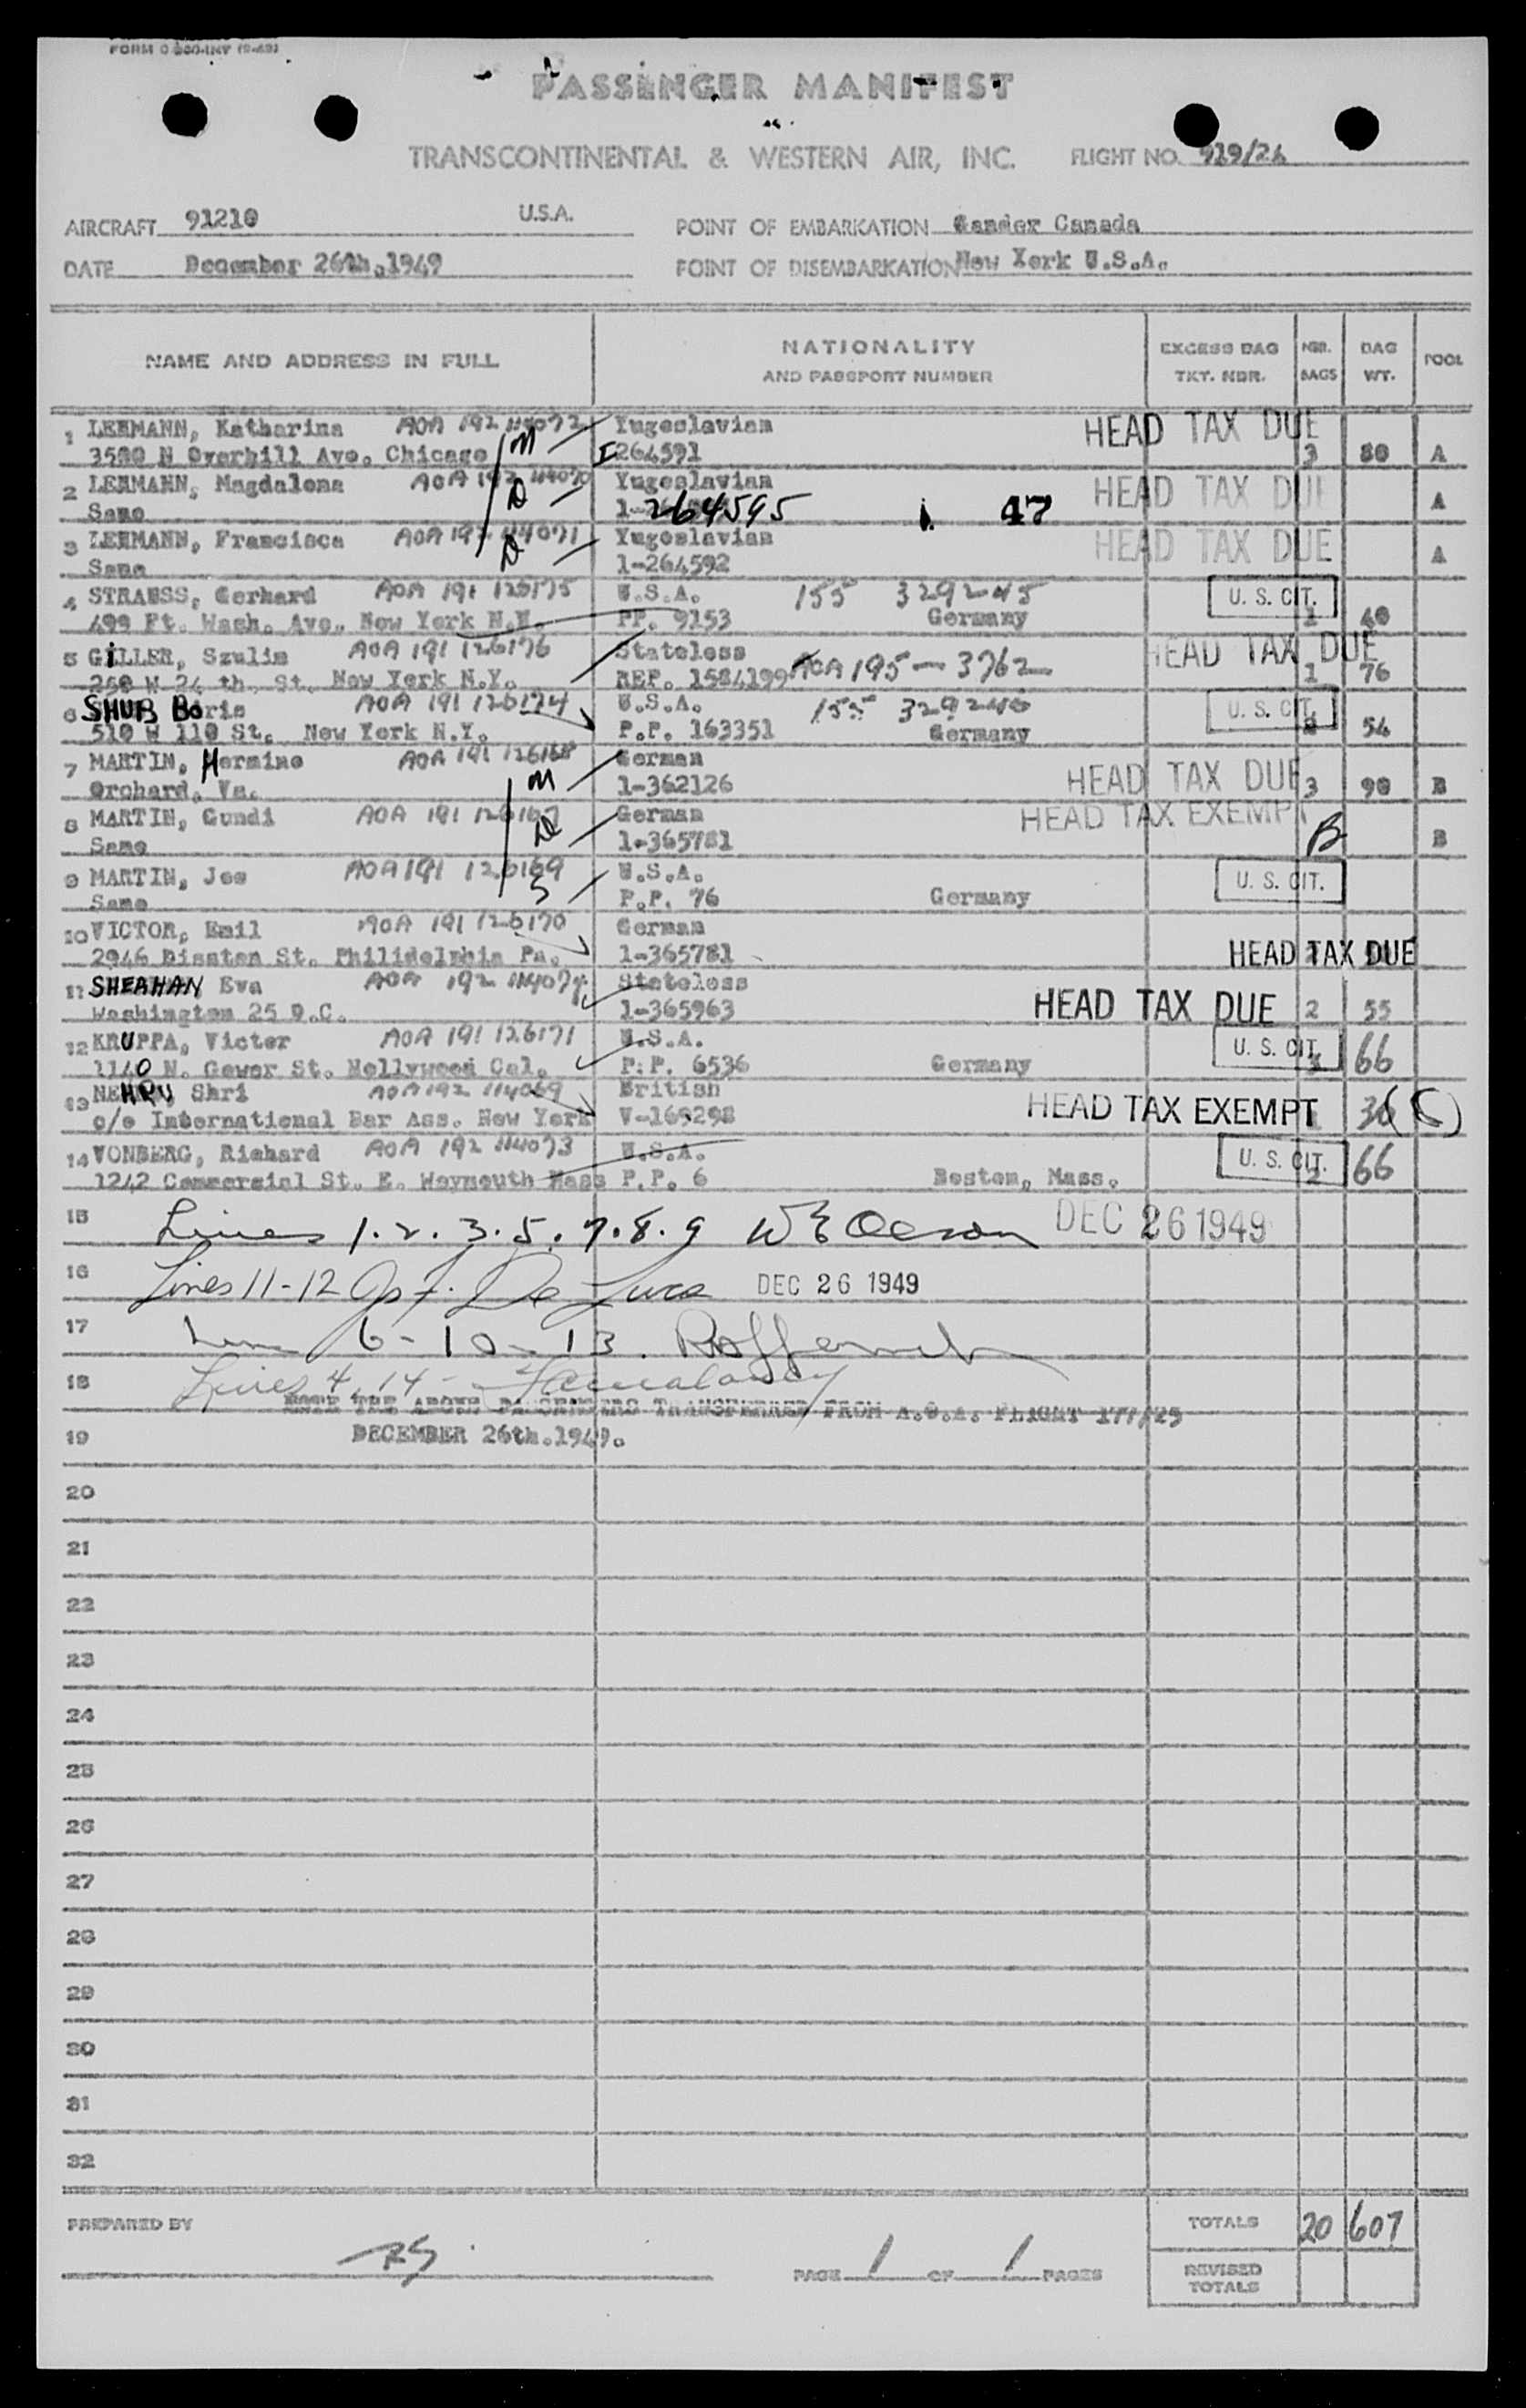 PASSENGER MANIFEST
TRANSCONTINENTAL & WESTERN AIR, INC. FLIGHT NO. 919/26
AIRCRAFT 91210 U.S.A. POINT OF EMBARKATION Gander Canada
DATE December 26th.1949 POINT OF DISEMBARKATION New York U.S.A.
NAME AND ADDRESS IN FULL NATIONALITY AND PASSPORT NUMBER EXCESS BAG TKT. NBR. NBR. BAGS BAG WT. POOL
1 LEHMANN, Katharina AOA 192 114072 Yugoslavian HEAD TAX DUE
3580 N Overhill Ave. Chicago M I 264591 3 80 A
2 LEHMANN, Magdalena AOA 192 114070 Yugoslavian HEAD TAX DUE
Same D 1-264595 1. 47 A
3 LEHMANN, Francisca AOA 192 114071 Yugoslavian HEAD TAX DUE
Same D 1-264592 A
4 STRAUSS, Gerhard AOA 191 126175 U.S.A. 155 329245 U. S. CIT.
499 Ft. Wash. Ave. New York N.Y. PP. 9153 Germany 1 40
5 GILLER, Szulim AOA 191 126176 Stateless HEAD TAX DUE
260 W 24 th. St. New York N.Y. REP. 1584199 AOA 195-3762 1 76
6 SHUB Boris AOA 191 126174 U.S.A. 155 329246 U. S. CIT.
510 W 110 St. New York N.Y. P.P. 163351 Germany 54
7 MARTIN, Hermine AOA 191 126168 German HEAD TAX DUE
Orchard, Va. M 1-362126 3 90 B
8 MARTIN, Gundi AOA 191 126167 German HEAD TAX EXEMPT
Same D 1-365781 B B
9 MARTIN, Joe AOA 191 126169 U.S.A. U. S. CIT.
Same S P.P. 76 Germany
10 VICTOR, Emil AOA 191 126170 German
2946 Disston St. Philidelphia Pa. 1-365781 HEAD TAX DUE
11 SHEAHAN, Eva AOA 192 114074 Stateless
Washington 25 D.C. 1-365963 HEAD TAX DUE 2 55
12 KRUPPA, Victor AOA 191 126171 U.S.A. U. S. CIT.
1140 N. Gower St. Hollywood Cal. P.P. 6536 Germany 3 66
13 NEHRU, Shri AOA 192 114069 British
c/o International Bar Ass. New York V-169298 HEAD TAX EXEMPT 36 (C)
14 VONBERG, Richard AOA 192 114073 U.S.A. U. S. CIT.
1242 Commercial St. E. Weymouth Mass P.P. 6 Boston, Mass. 2 66
15 Lines 1.2.3.5.7.8.9 DEC 26 1949
16 Lines 11-12 De Luca DEC 26 1949
17 Line 6-10-13
18 Lines 4, 14
NOTE THE ABOVE PASSENGERS TRANSFERRED FROM A.O.A. FLIGHT
19 DECEMBER 26th.1949.
20
21
22
23
24
25
26
27
28
29
30
31
32
PREPARED BY RS PAGE 1 OF 1 PAGES TOTALS 20 607
REVISED TOTALS